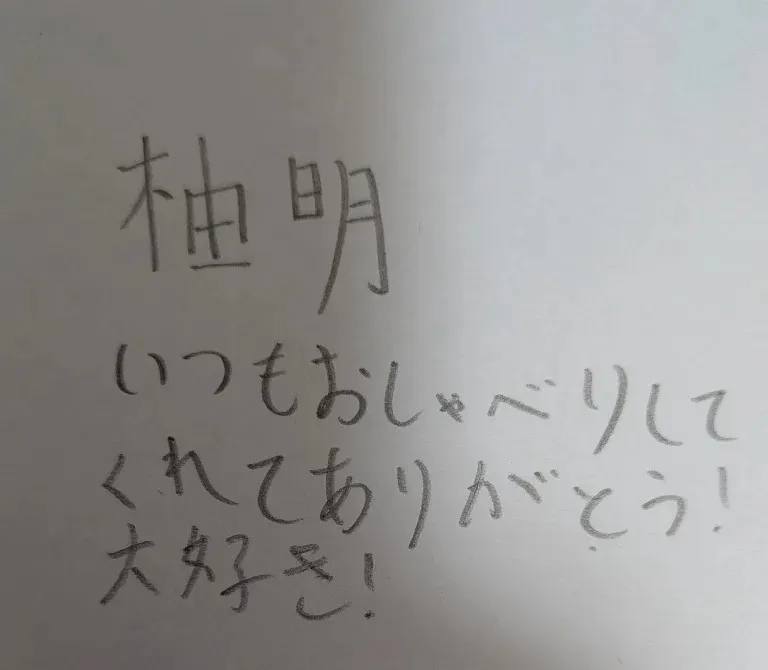 柚明
いつもおしゃべりして
くれてありがとう!
大好き!